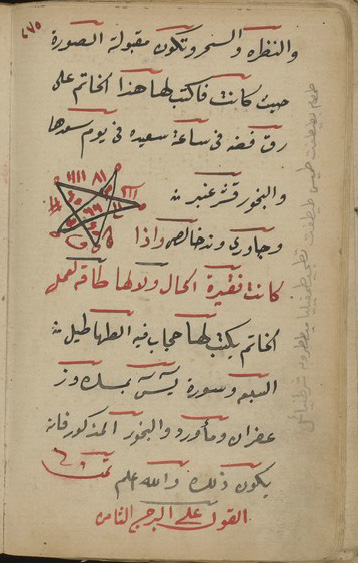 والنظره والسحر وتكون مقبولة الصورة
حيث كانت فاكتب لها هذا الخاتم على
رق فضه فى ساعة سعيده فى يوم سعدها
والبخور قشر عنبر
وجاوي وند خالص واذا
كانت فقيرة الحال ولا لها طاقه لعمل
الخاتم يكتب لها حجاب فيه الطهاطيل
السبعه وسورة يس بمسك وز
عفران وماورد والبخور المذكور فانه
يكون ذلك والله اعلم تمت
القول على البرج الثامن